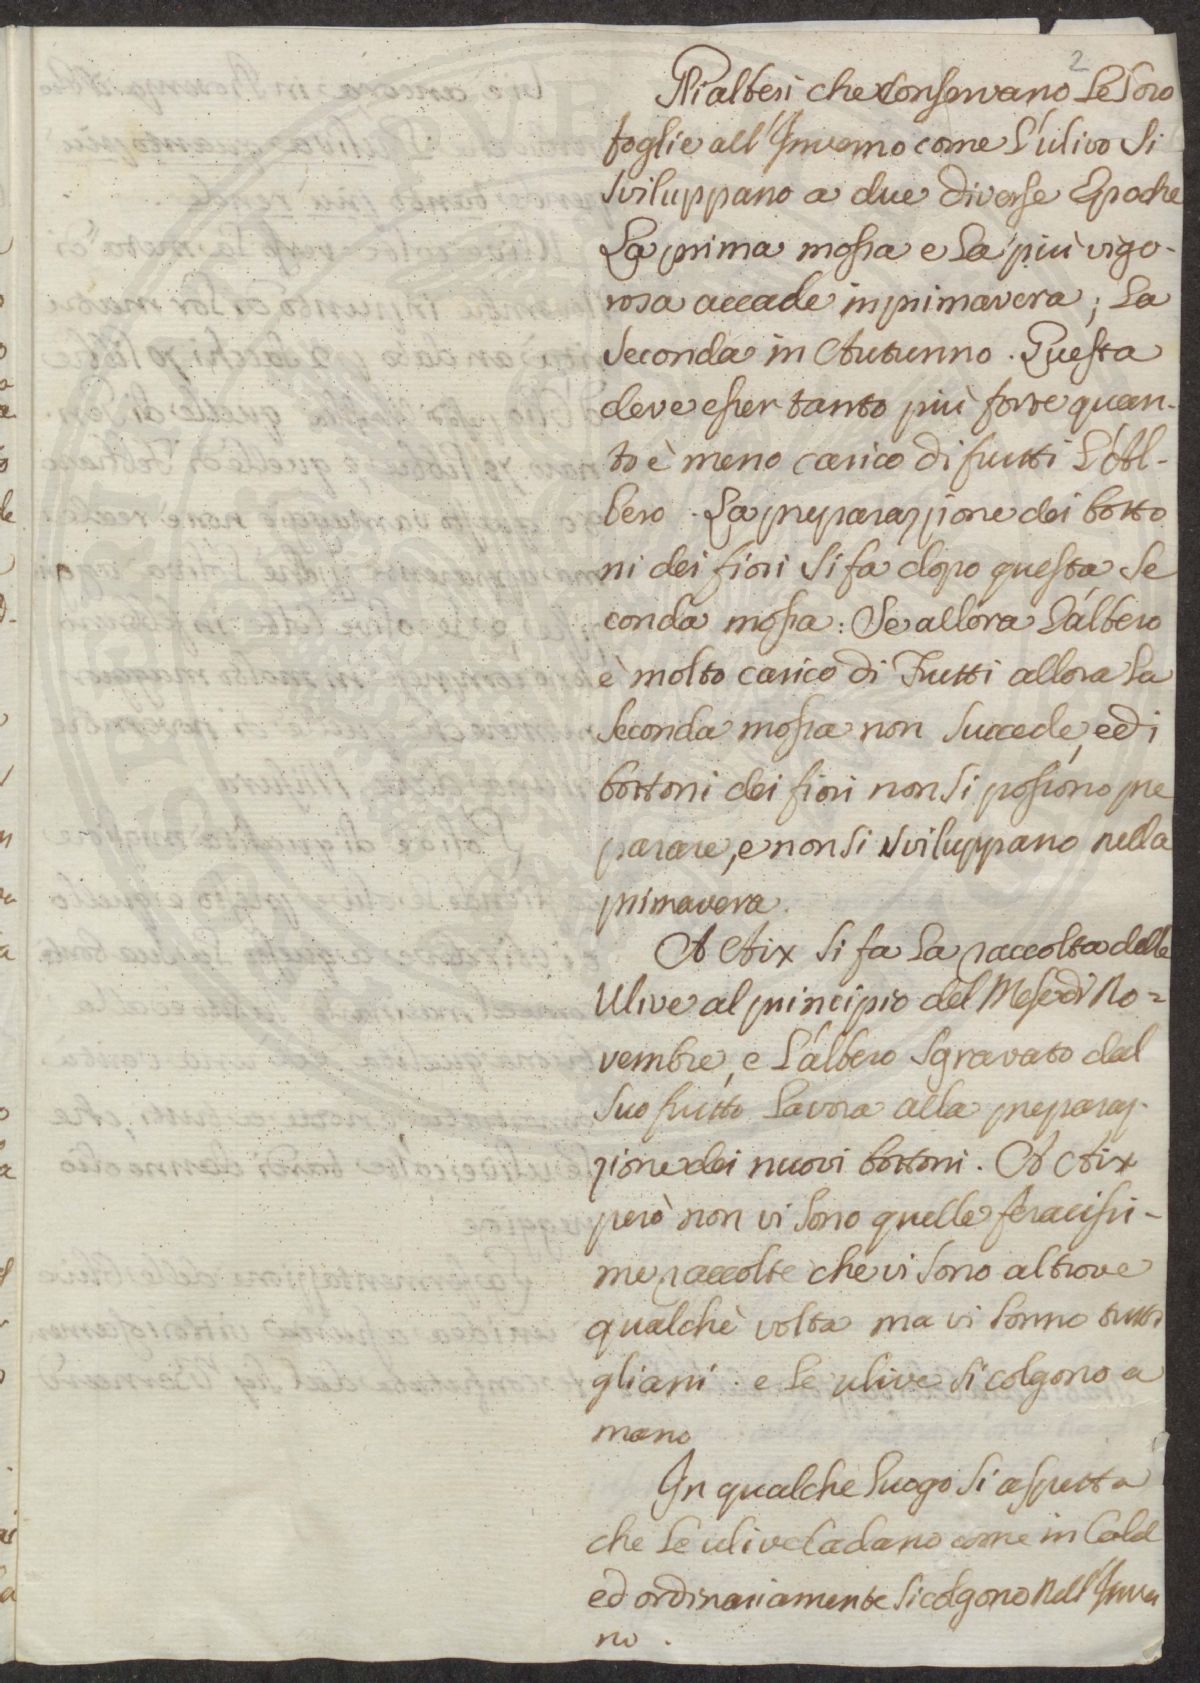 2
Gli alberi che conservano le loro
foglie all'Inverno come l'ulivo si
sviluppano a due diverse Epoche
La prima mossa e la più vigo-
rosa accade in primavera; la
seconda in Autunno. Questa
deve esser tanto più forte quan-
to è meno carico di frutti l'Al-
bero. La preparazione dei botto
ni dei fiori si fa dopo questa se
conda mossa: Se allora l'albero
è molto carico di Frutti allora la
seconda mossa non succede, ed i
bottoni dei fiori non si possono pre
parare, e non si sviluppano nella
primavera.
A Aix si fa la raccolta delle
Ulive al principio del Mese di No=
vembre, e l'albero sgravato dal
suo frutto lavora alla preparaz-
zione dei nuovi bottoni. A Aix
però non vi sono quelle feracissi-
me raccolte che vi sono altrove
qualchè volta ma vi sonno tutti
gli ani. e le ulive si colgono a
mano
In qualche luogo si aspetta
che le ulive cadano come in
ed ordinariamente si colgono nell'Inver
no.